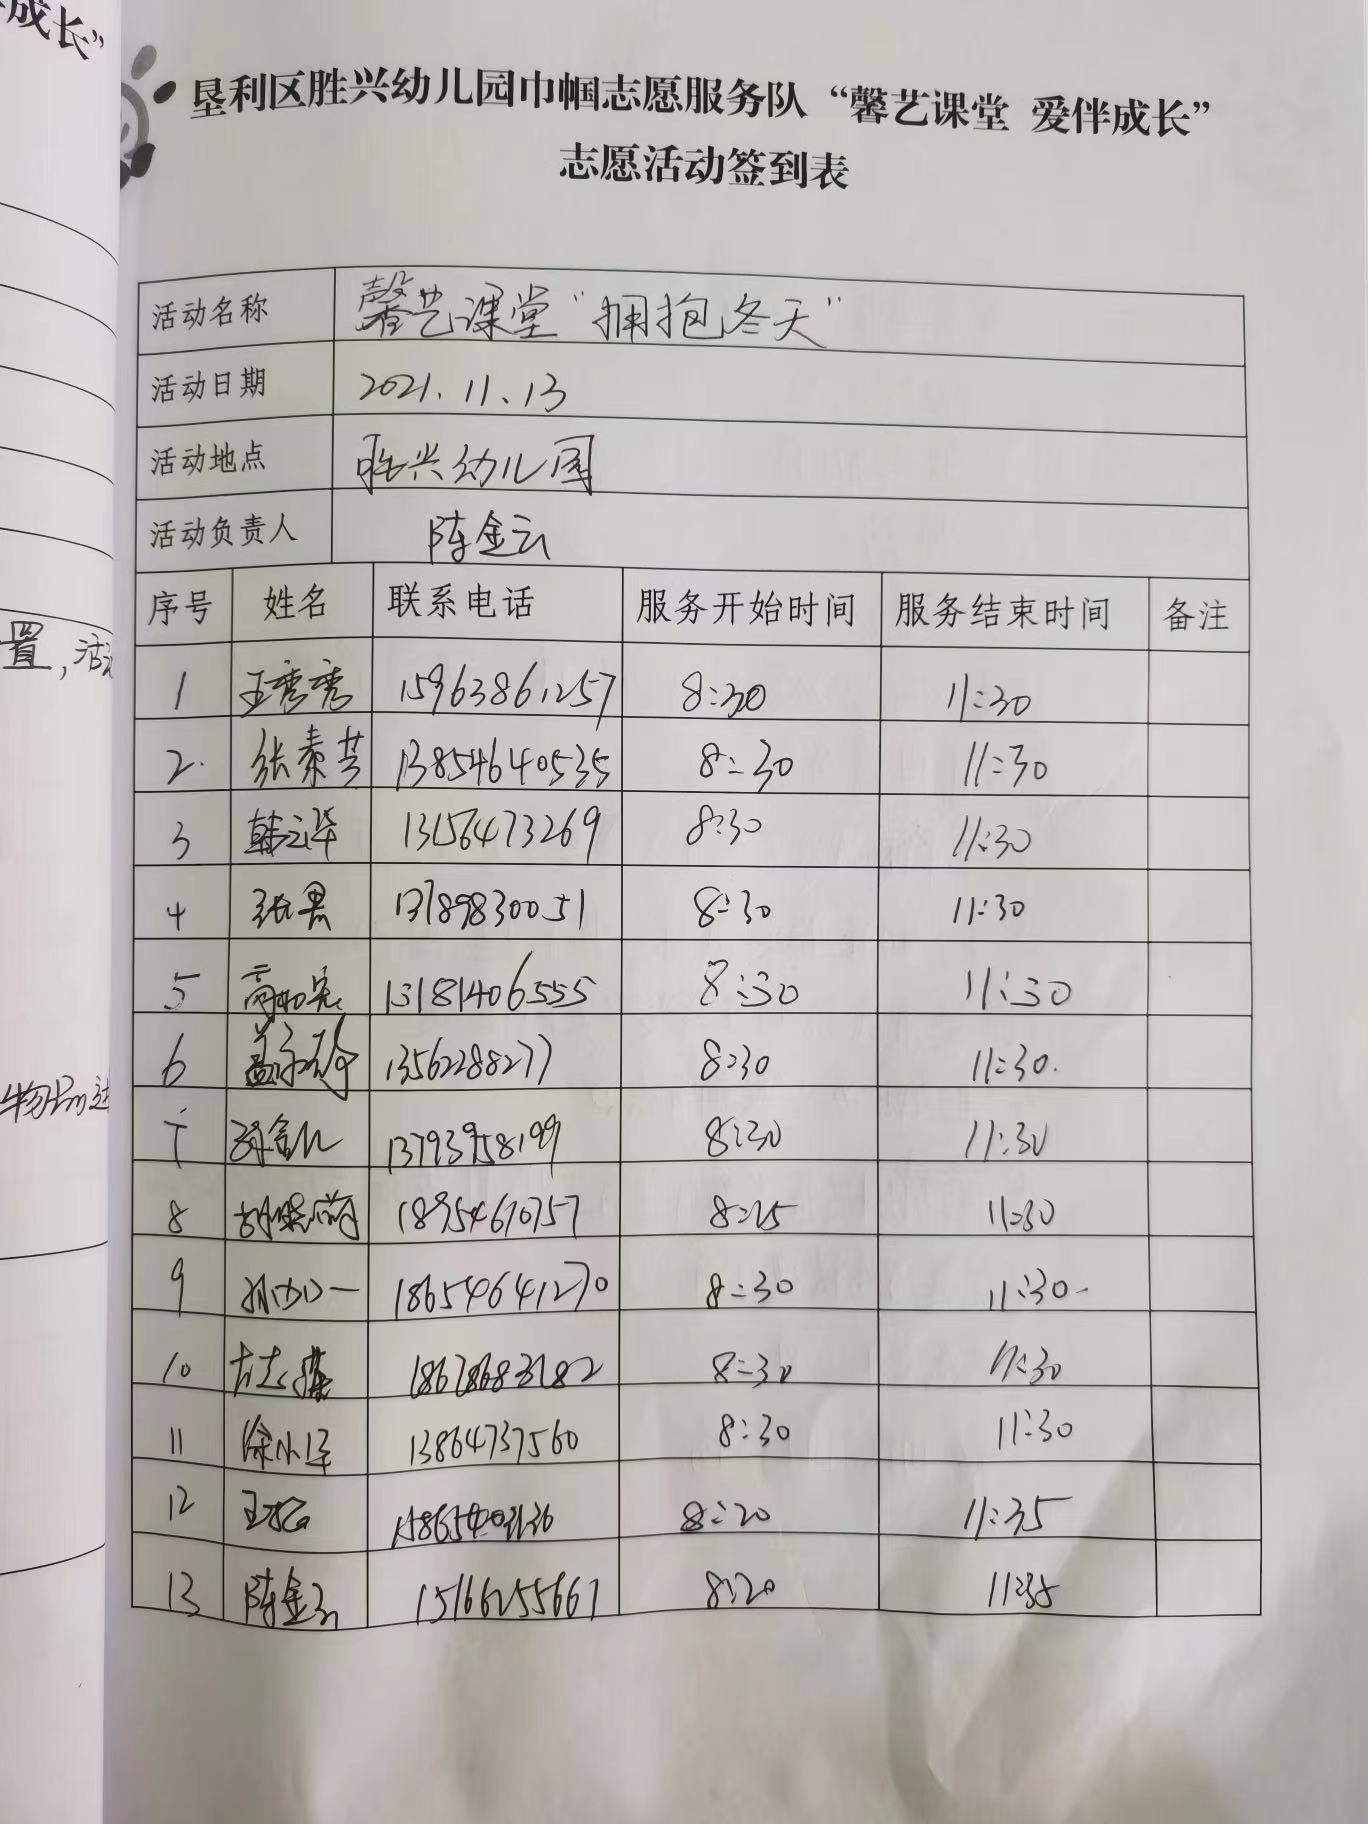 成长”
垦利区胜兴幼儿园巾帼志愿服务队“馨艺课堂 爱伴成长”
志愿活动签到表
活动名称 馨艺课堂“拥抱冬天”
活动日期 2021.11.13
活动地点 胜兴幼儿园
活动负责人 陈金云
序号 姓名 联系电话 服务开始时间 服务结束时间 备注
1 王秀秀 15963861257 8:30 11:30
2. 张素芸 13854640535 8:30 11:30
3 韩云华 13156473269 8:30 11:30
4 13789830051 8:30 11:30
5 13181406555 8:30 11:30
6 13562288277 8:30 11:30.
7 13793958199 8:30 11:30
8 胡晓蔚 18954670757 8:25 11:30
9 孙加一 18654641270 8:30 11:30
10 18678683182 8:30 11:30
11 徐小军 13864737560 8:30 11:30
12 8:20 11:35
13 陈金云 15166255661 8:20 11:35
置，活
物品